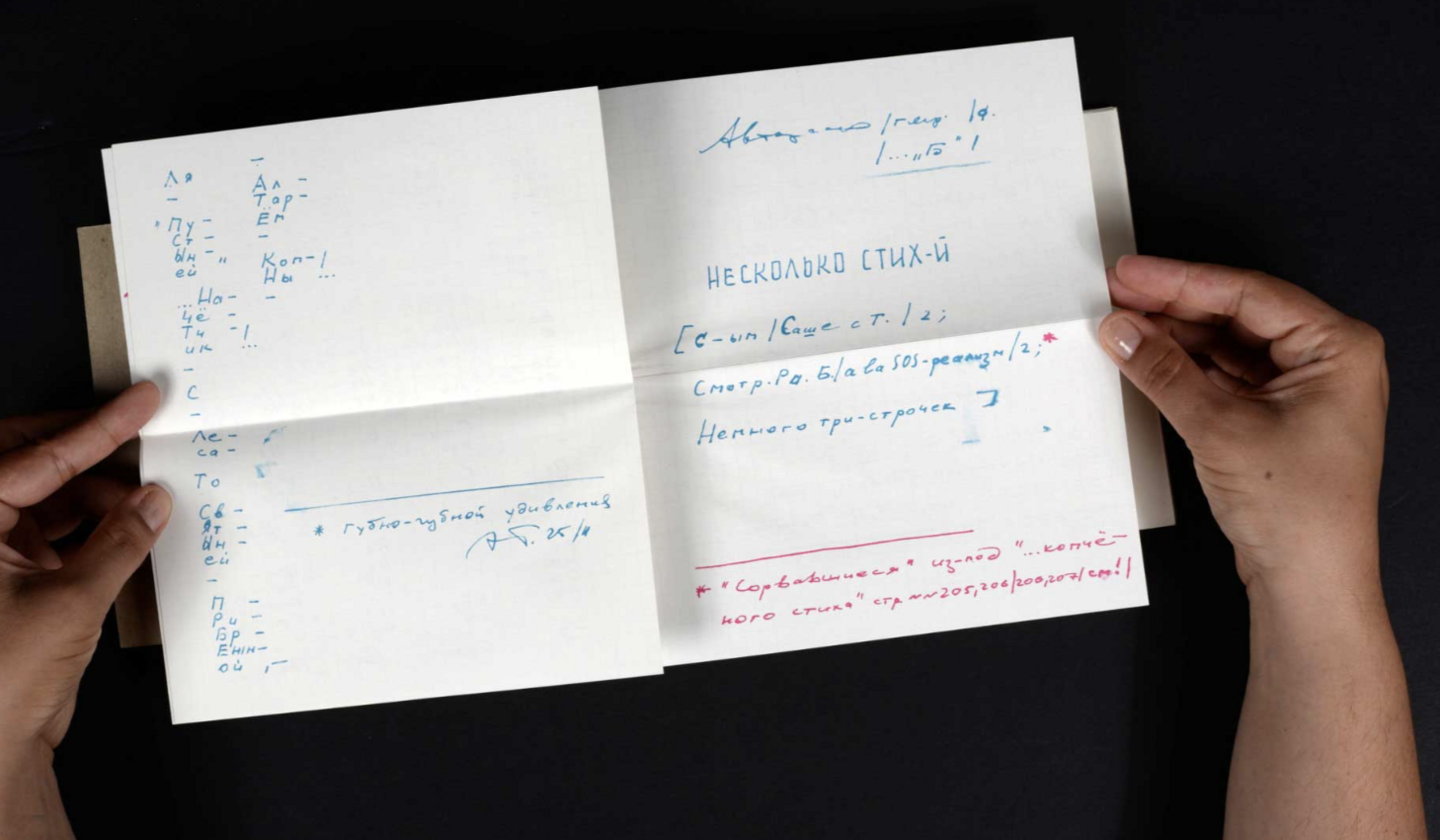 Ля
-
* Пу -
Ст -
Ын - "
ей
...На-
Чё -
Тч - !
ик ...
-
С
-
Ле -
са -
То
Св -
Ят -
Ын -
ей
-
П -
Ри -
Бр -
Енн-
ой , -
-
Ал -
Тар -
Ём
-
Коп- !
Ны ...
-
* Губно-губной удивления
25/II
/... "Б" /
НЕСКОЛЬКО СТИХ-Й
[С-ым /Саше с Т. / 2;
Смотр. Ра. Б./а ла SOS-реализм/2;*
Немного три-строчек ]
* "Сорвавшиеся" из-под "...копчё-
ного стиха" стр NN 205,206/206,207/см!/